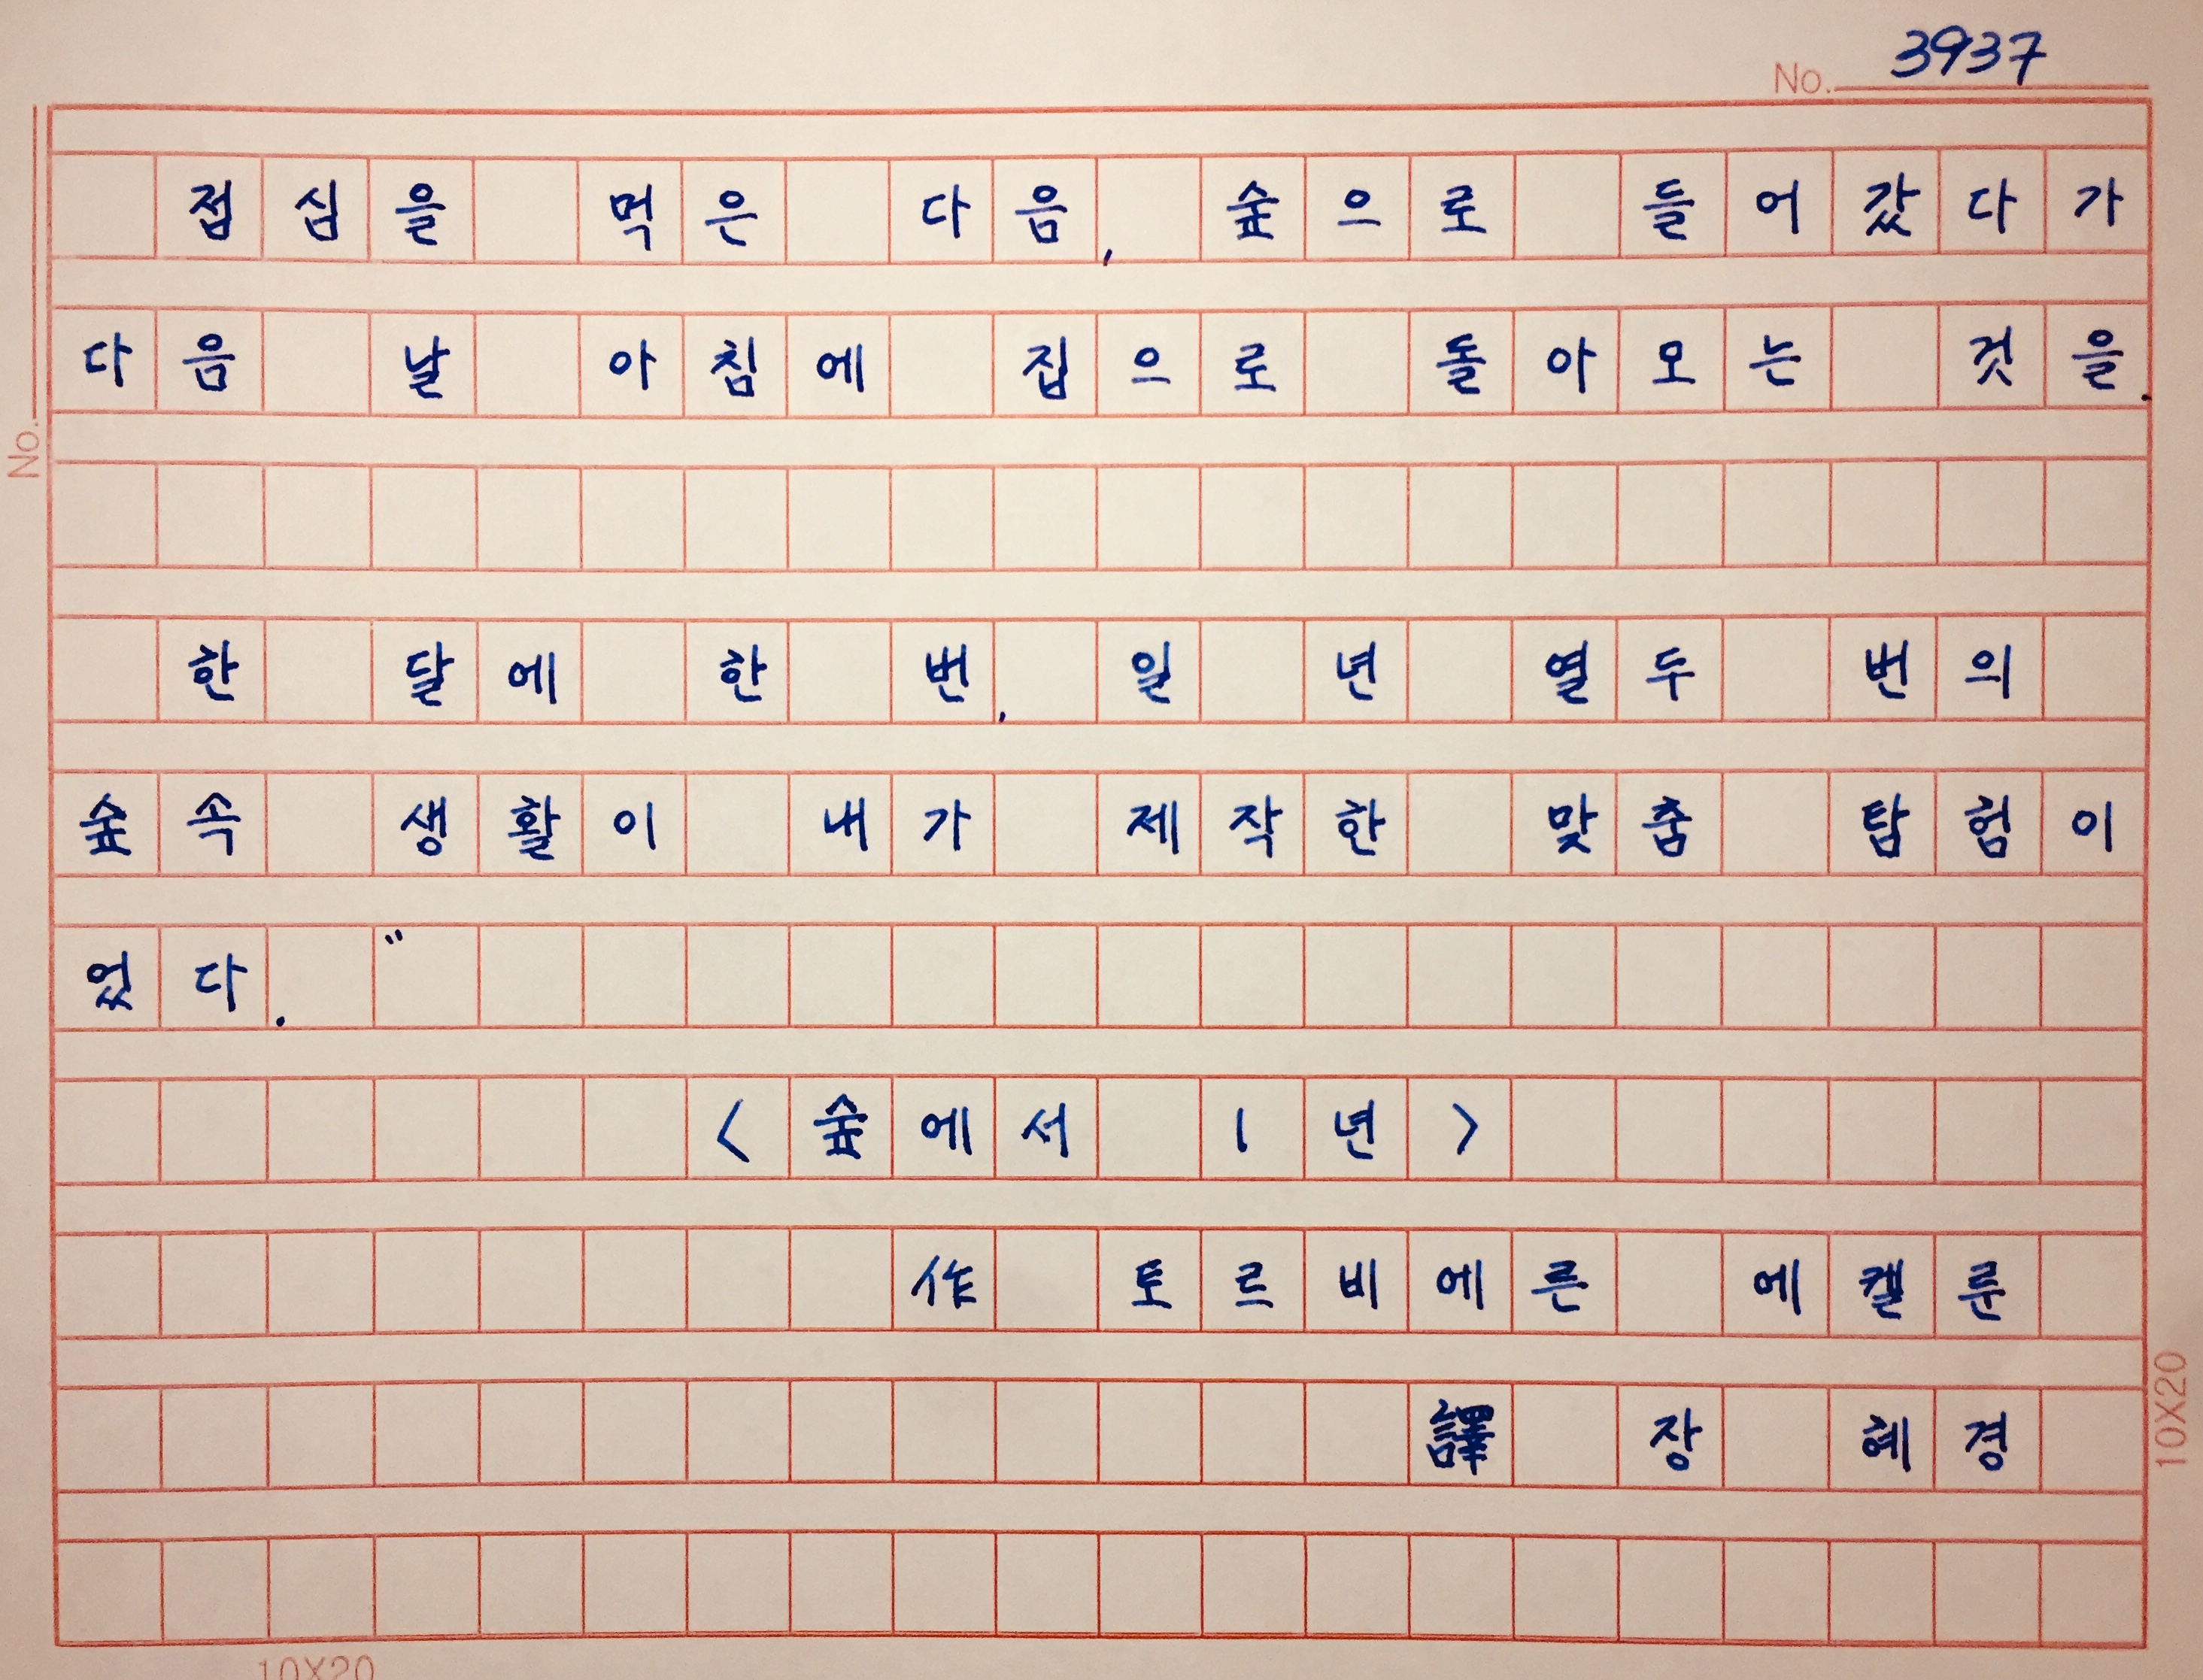 No. 3937
점심을 먹은 다음, 숲으로 들어갔다가
다음 날 아침에 집으로 돌아오는 것을.
한 달에 한 번, 일 년 열두 번의
숲속 생활이 내가 제작한 맞춤 탐험이
었다."
<숲에서 1년>
作 토르비에른 에켈룬
譯 장 혜경
No.
10X20
10X20